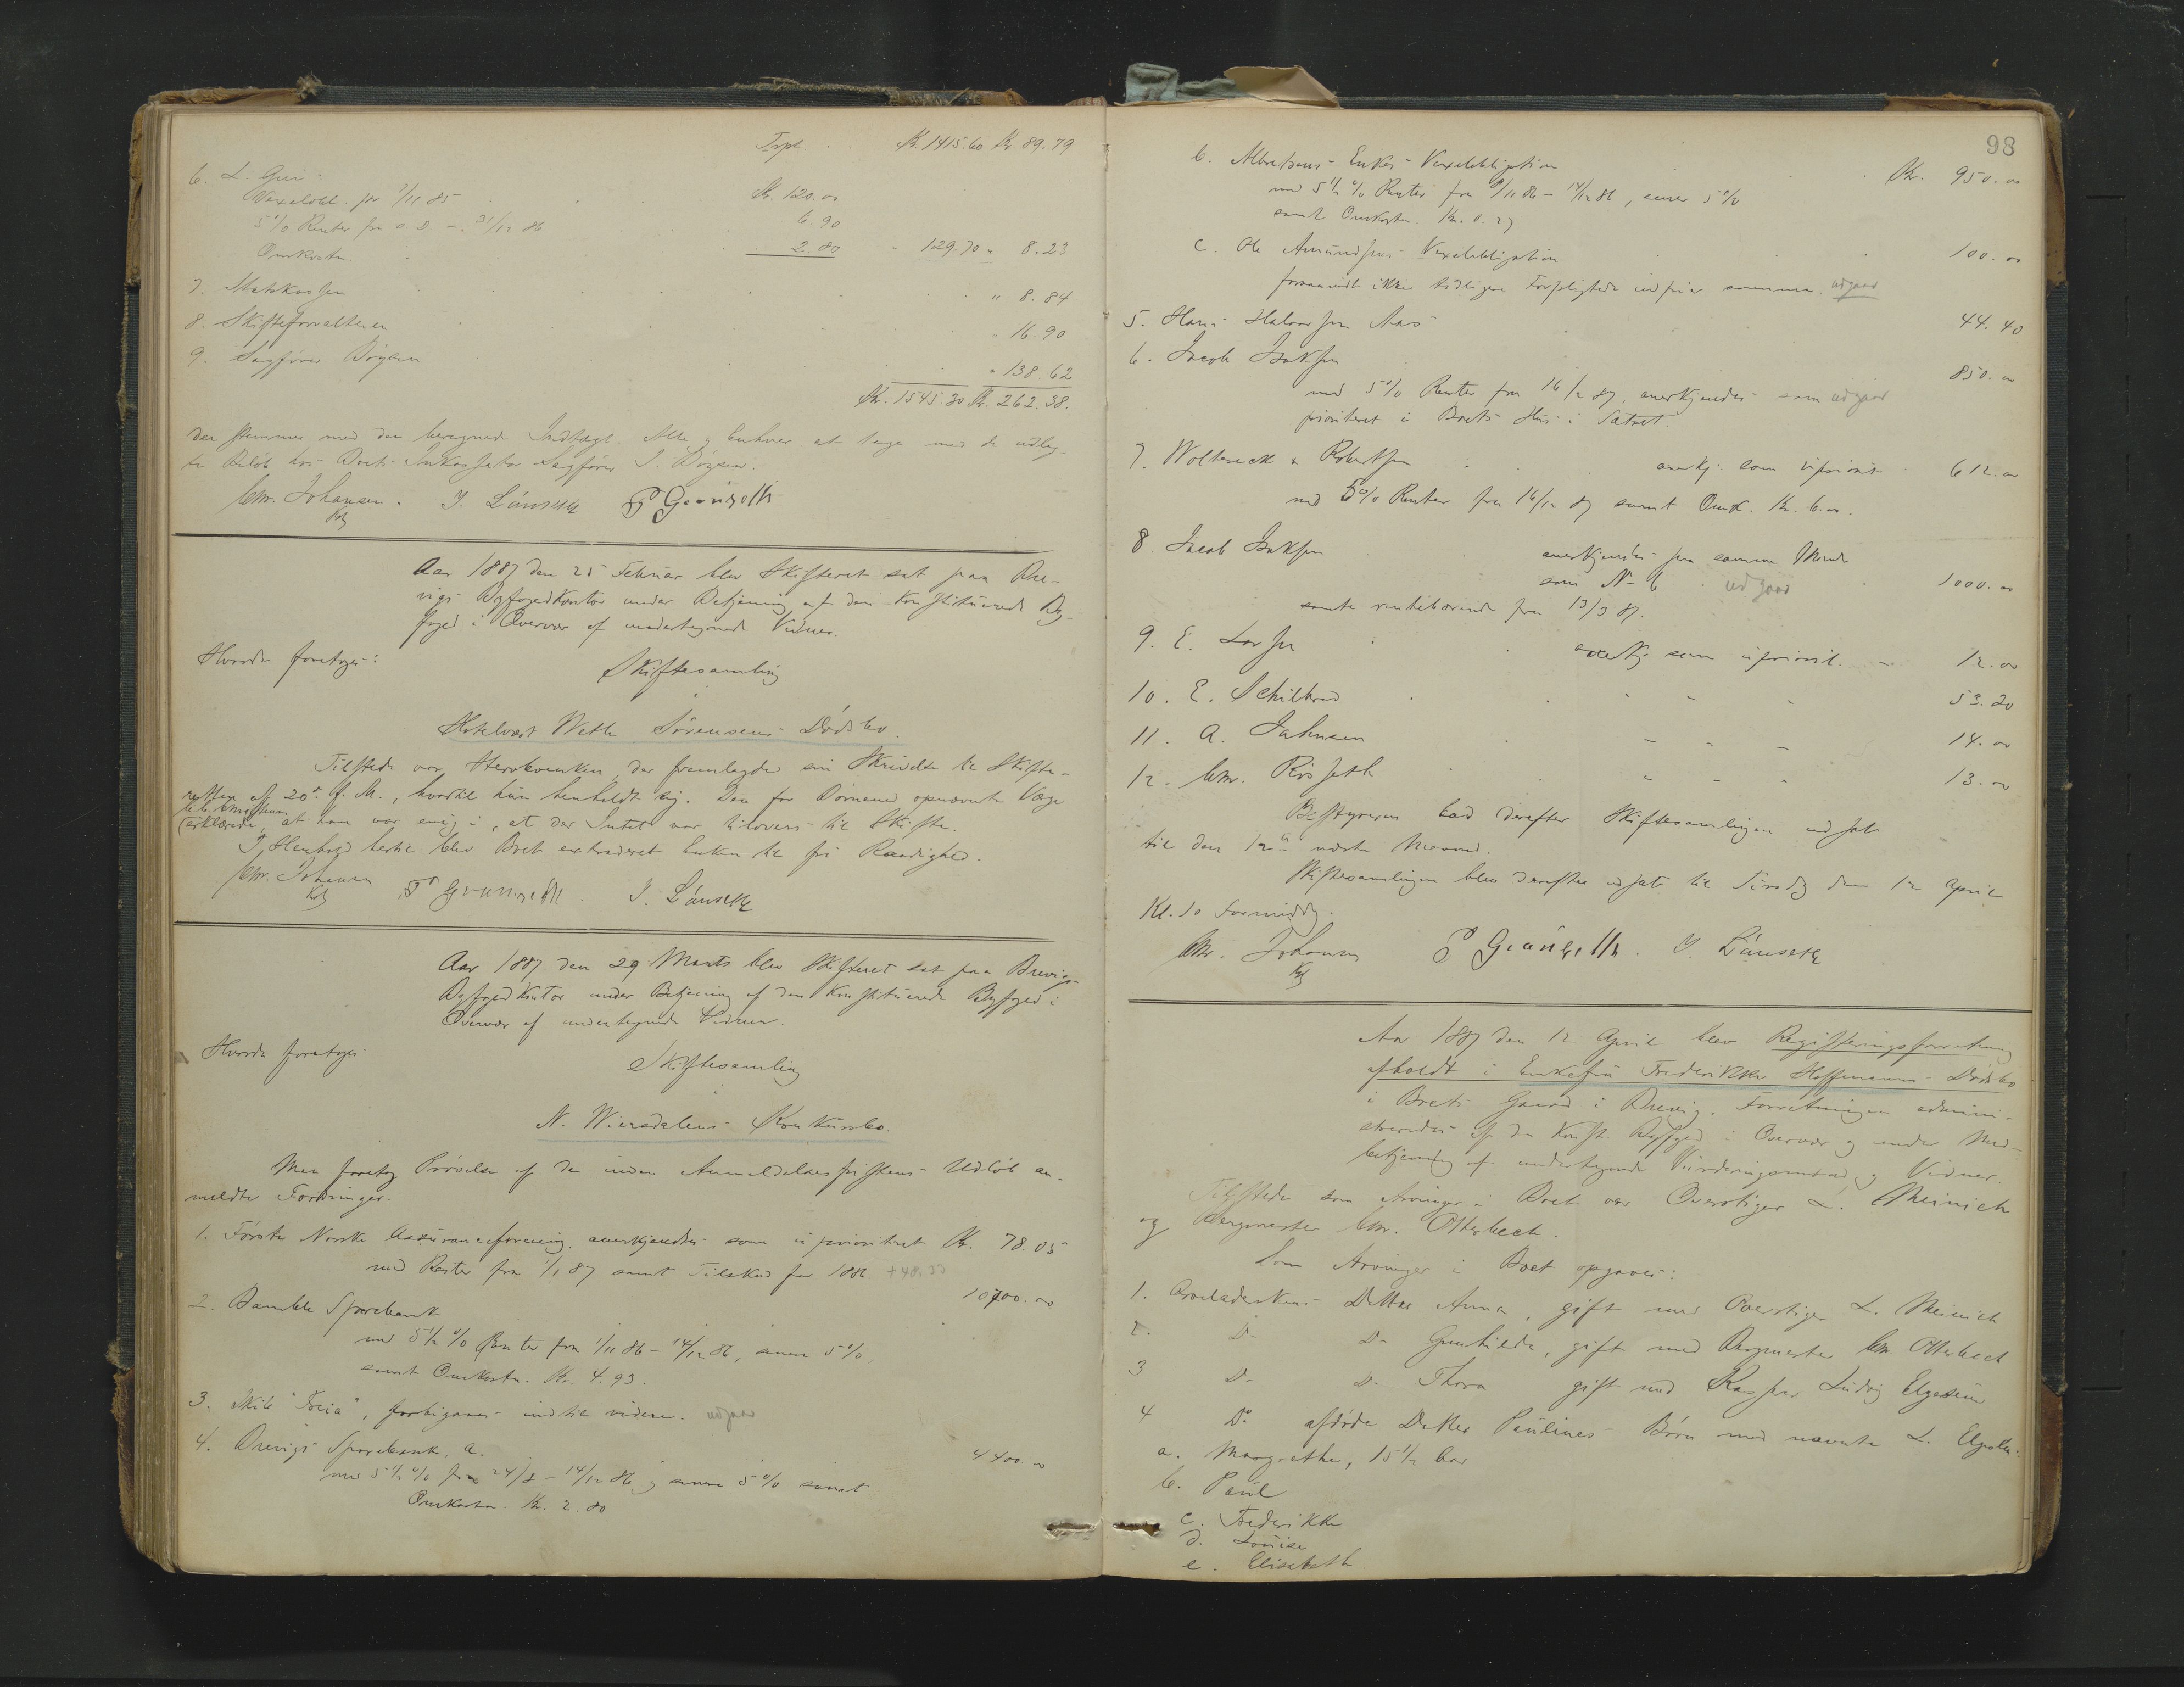 Trpt. Kr. 1415.60 Kr. 89.79
6. L. Grei
Vexelobl. fra 1/11 85 Kr. 120.00
5% Renter fra s. D. - 31/12 86 6.90
Omkostn. 2.80 " 129.70 " 8.23
7. Statskassen " 8.84
8. Skifteforvalteren " 16.90
9. Sagfører Böyesen " 138.62
Kr. 1545.30 Kr. 262.38.
der stemmer med den beregnede Indtægt. Alle og Enhver at tage med de udlag-
te Beløb hos Boets Inkassator Sagfører J. Böyesen.
Chr. Johansen. J. Lánsek P Grönseth
Kst
Aar 1887 den 25 Februar blev Skifteret sat paa Bre-
vigs Byfogedkontor under Betjening af den Konstituerede By-
foged i Overvær af undertegnede Vidner.
Hvorda foretoges:
Skiftesamling
i
Hotelvært Sörensens Dödsbo.
Tilstede var Sterboenken, der fremlagde sin Skrivelse til Skifte-
retten af 20de d. M., hvortil hun henholdt sig. Den for Börnene opnævnte Værge
erklærede, at han var enig i, at der Intet var tilovers til Skifte.
I Henhold hertil blev Boet extraderet Enken til fri Raadighed.
Chr. Johansen P Grönseth. J. Lánsek
Kst
Aar 1887 den 29 Marts blev Skifteret sat paa Brevigs
Byfogedkontor under Betjening af den Konstituerede Byfoged i
Overvær af undertegnede Vidner.
Hvorda foretoges
Skiftesamling
i
N. Wiersdalens Konkursbo.
Man foretog Prövelse af de inden Anmeldelsesfristens Udlöb an-
meldte Fordringer.
1. Förste Norske Assuranceforening anerkjendtes som uprioriteret Kr. 78.05
med Renter fra 1/1 87 samt Tilskud for 1886. + 48.33
2. Bamble Sparebank 10700.00
med 5 1/2 % Renter fra 1/11 86 - 14/12 86, senere 5%,
samt Omkostn. Kr. 4.93.
3. Skib "Freia", forbigaaes indtil videre. udgaar
4. Brevigs Sparebank, a. 4400.00
med 5 1/2 % fra 24/8 - 14/12 86, senere 5% samt
Omkostn. Kr. 2.80
98
b. Enkes Vexelobligation Kr. 950.00
med 5 1/2 % Renter fra 8/11 86 - 14/12 86, senere 5%
samt Omkostn. Kr. 0.27
c. Ole Amundsens Vexelobligation 100.00
forsaavidt ikke tidligere Forpligtede indfrier samme. udgaar
5. Hans Halvorsen Aas 44.40
6. Jacob Isaksen 850.00
med 5% Renter fra 16/2 87, anerkjendes som udgaar
prioriteret i Boets Hus i
7. Woltereck & Robertsen anerkj. som upriorit. 612.00
med 5% Renter fra 16/12 87 samt Omk. Kr. 6.00.
8. Jacob Isaksen anerkjendes paa samme Maade
som No 6 udgaar 1000.00
samt rentebærende fra 13/3 87.
9. E. Larsen anerkj. som upriorit. - 12.00
10. E. Schilbred - - - 53.20
11. A. Johnsen - - - 14.00
12. Chr. Risseth - - - 13.00
Bestyreren bad derefter Skiftesamlingen udsat
til den 12te næste Maaned.
Skiftesamlingen blev derefter udsat til Tirsdag den 12 April
Kl. 10 Formiddag.
Chr. Johansen P Grönseth. J. Lánsek
Kst
Aar 1887 den 12 April blev Registreringsforretning
afholdt i Enkefru Frederikke Hoffmanns Dödsbo
i Boets Gaard i Brevig. Forretningen admini-
streredes af den Konst. Byfoged i Overvær og under Med-
betjening af undertegnede Vurderingsmænd og Vidner.
Tilstede som Arvinger i Boet var Overstiger L. Meinich
og Bergmester Chr. Otterbech.
Som Arvinger i Boet opgaves:
1. Arveladerskens Datter Anna, gift med Overstiger L. Meinich
2. Do Do Gunhilda, gift med Bergmester Chr. Otterbech
3 Do Do Thora gift med Kasper Ludvig Elgesem
4 Do afdöde Datter Paulines Börn med nævnte L. Elgesem:
a. Margrethe, 15 1/2 Aar
b. Paul
c. Frederikke
d. Lovise
e. Elisabeth.